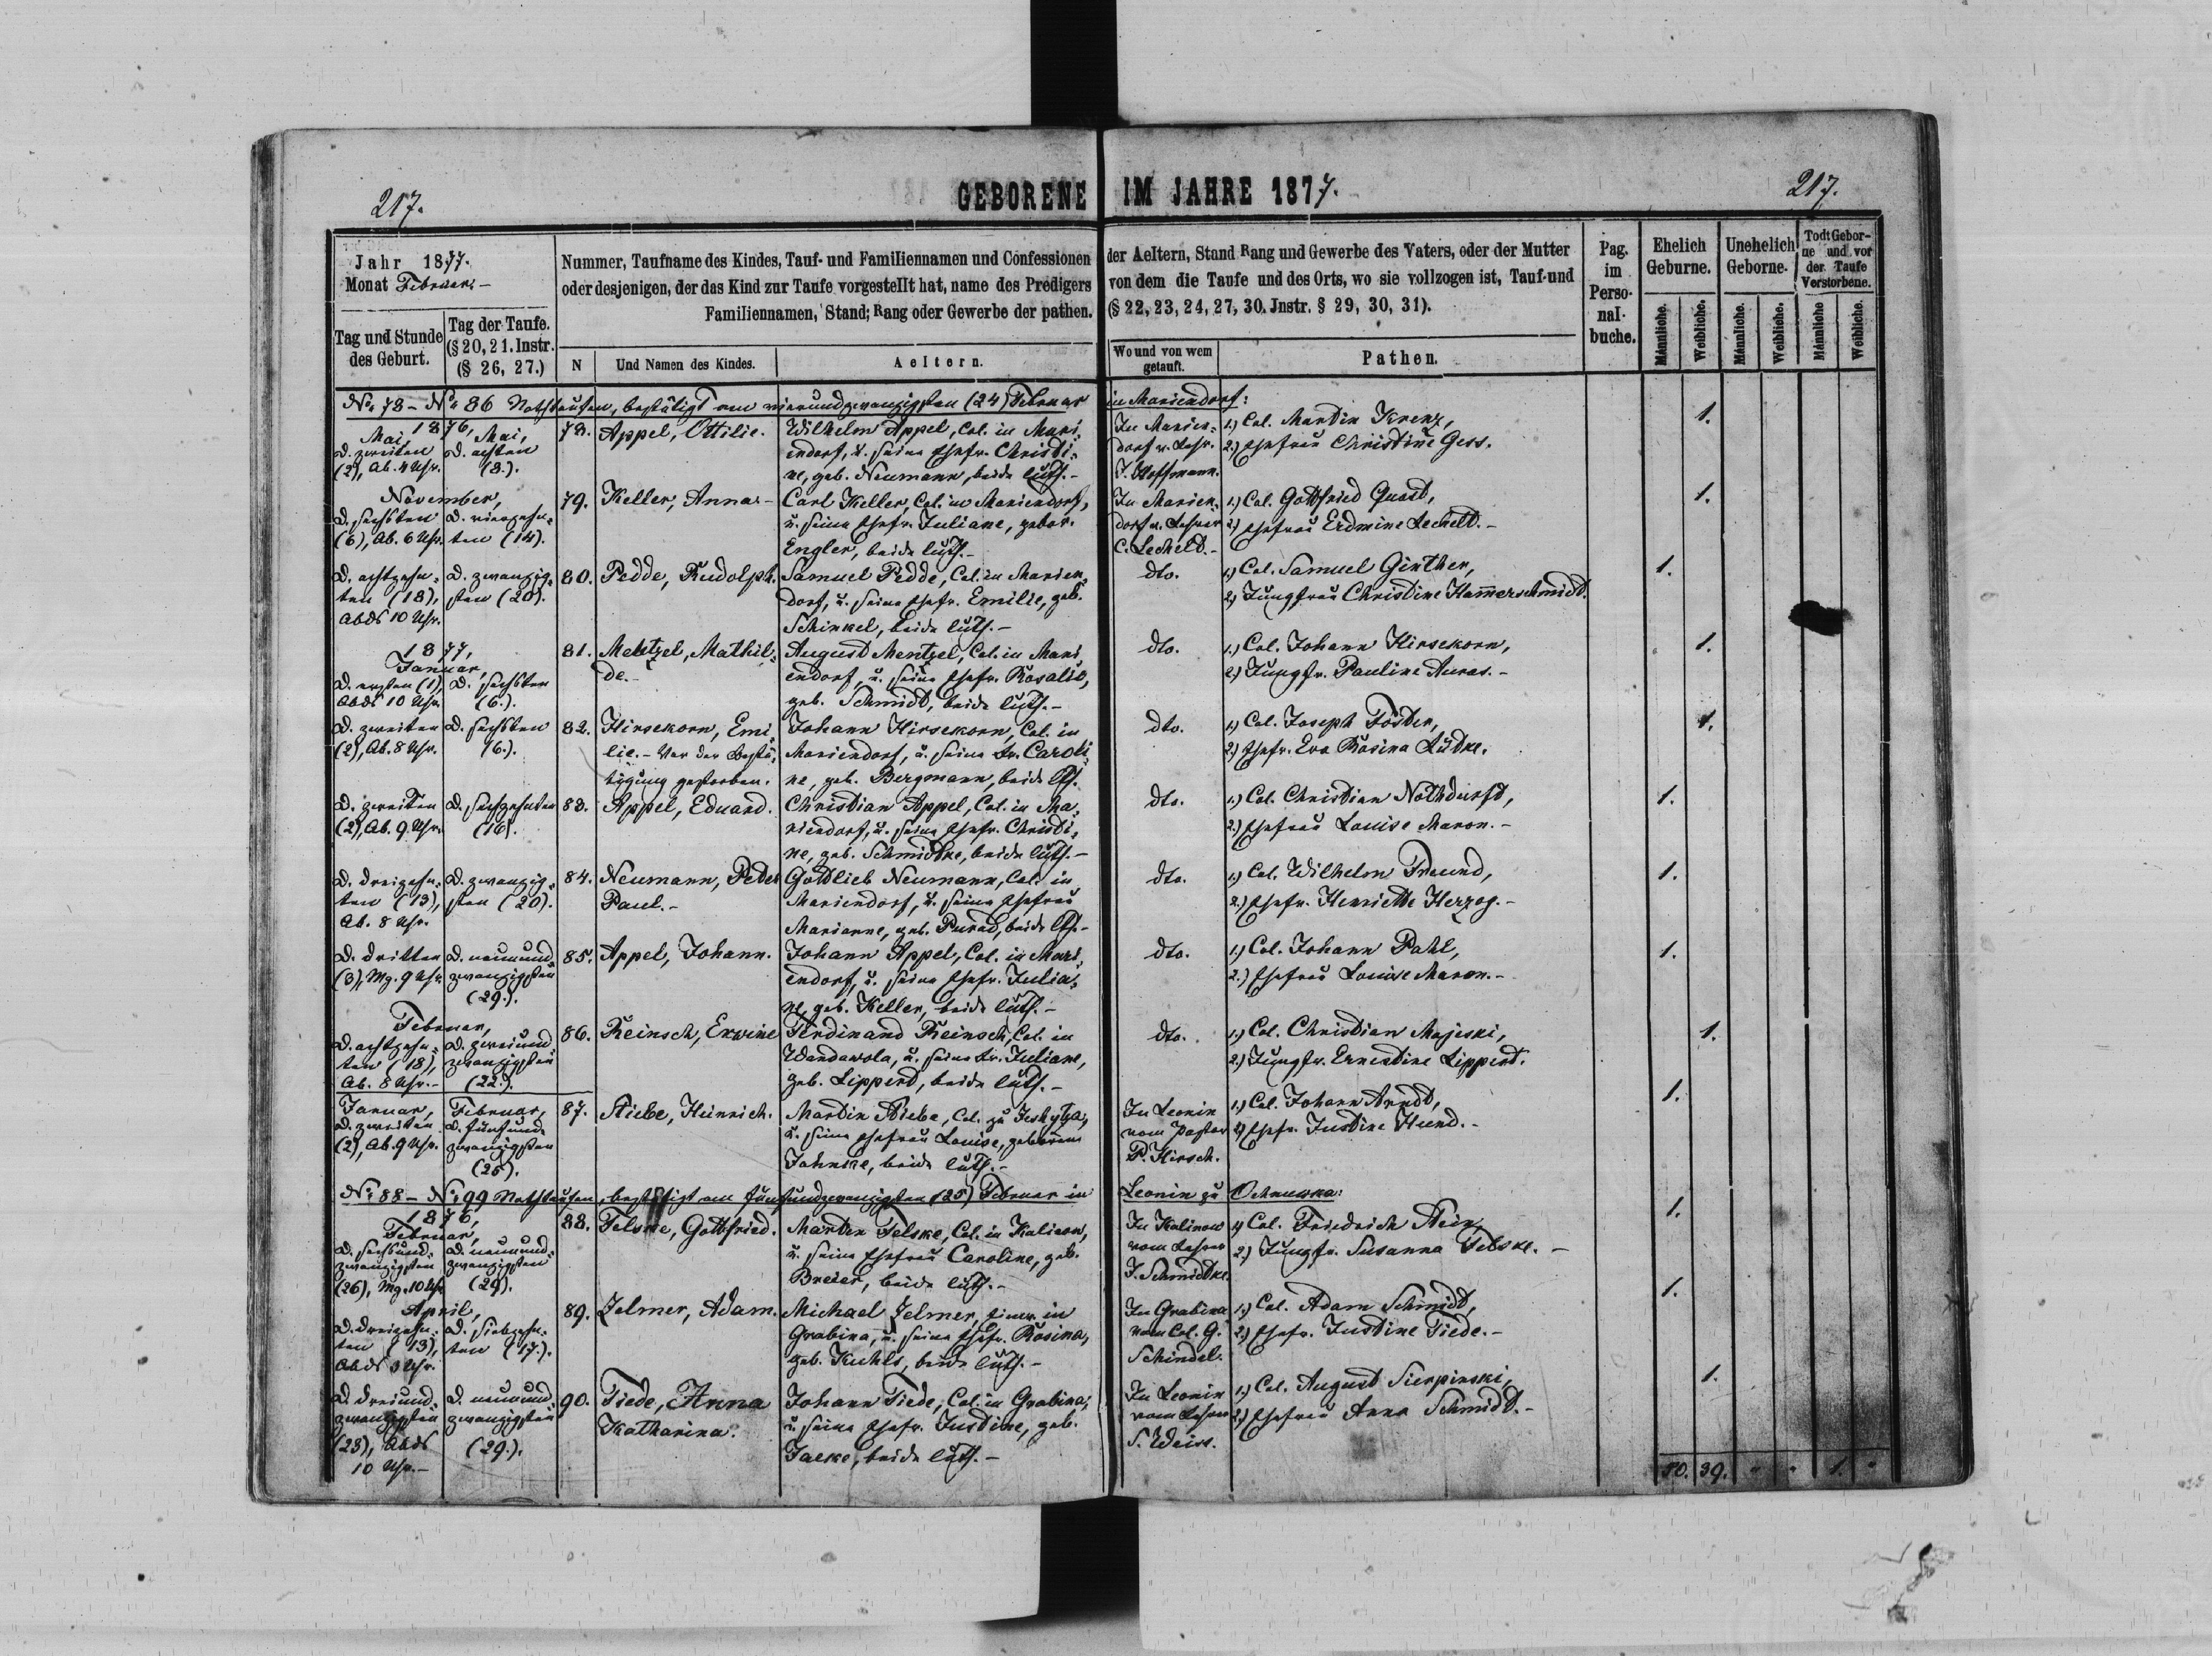 217.
GEBORENE IM JAHRE 1877.
217.
Jahr 1877.
Monat Februar. -
Tag und Stunde des Geburt.
Tag der Taufe.
(§ 20, 21. Instr.
(§ 26, 27.)
Nummer, Taufname des Kindes, Tauf- und Familiennamen und Confessionen der Aeltern, Stand Rang und Gewerbe des Vaters, oder der Mutter
oder desjenigen, der das Kind zur Taufe vorgestellt hat, name des Predigers von dem die Taufe und des Orts, wo sie vollzogen ist, Tauf-und
Familiennamen, Stand; Rang oder Gewerbe der pathen. (§ 22, 23, 24, 27, 30. Jnstr. § 29, 30, 31).
N
Und Namen des Kindes.
Aeltern.
Wo und von wem getauft.
Pathen.
Pag. im Perso-nal-buche.
Ehelich Geburne.
Unehelich Geborne.
Todt Gebor-ne und vor der Taufe Verstorbene.
Männliche. Weibliche. Männliche. Weibliche. Männliche Weibliche.
No. 78 - No. 86 Nothtaufen, bestätigt am vierundzwanzigsten (24) Februar in Mariendorf:
1876,
Mai, Mai,
d. zweiten d. achten
(2), Ab. 4 Uhr. (8.).
78. Appel, Ottilie.
Wilhelm Appel, Col. in Mari-
endorf, u. seine Ehefr. Christi-
ne, geb. Neumann, beide luth. -
In Marien-
dorf v. Lehr.
J. Hoffmann.
1.) Col. Martin Krenz,
2.) Ehefrau Christine Gess.
1.
November,
d. sechsten d. vierzehn-
(6), Ab. 6 Uhr. ten (14).
79. Keller, Anna. -
Carl Keller, Col. in Mariendorf,
u. seine Ehefr. Juliane, gebor.
Engler, beide luth. -
In Marien-
dorf v. Lehrer
C. Lecheld. -
1.) Col. Gottfried Quast,
2.) Ehefrau Erdmine Lecheld. -
1.
d. achtzehn- d. zwanzig-
ten (18), sten (20).
Abds 10 Uhr.
80. Pedde, Rudolph.
Samuel Pedde, Col. in Marien-
dorf, u. seine Ehefr. Emilie, geb.
Schinkel, beide luth. -
dto.
1.) Col. Samuel Ginther,
2.) Jungfrau Christine Hammerschmidt.
1.
1877,
Januar,
d. ersten (1), d. sechsten
Abds 10 Uhr. (6.).
81. Mentzel, Mathil-
de. -
August Mentzel, Col. in Mari-
endorf, u. seine Ehefr. Rosalie,
geb. Schmidt, beide luth. -
dto.
1.) Col. Johann Hirsekorn,
2.) Jungfr. Pauline Auras. -
1.
d. zweiten d. sechsten
(2), Ab. 8 Uhr. (6.).
82. Hirsekorn, Emi-
lie. - Vor der Bestä-
tigung gestorben.
Johann Hirsekorn, Col. in
Mariendorf, u. seine Fr. Caroli-
ne, geb. Bergmann, beide lth.
dto.
1.) Col. Joseph Föster,
2.) Ehefr. Eva Rosina Lüdke.
1.
d. zweiten d. sechzehnten
(2), Ab. 9. Uhr. (16).
83. Appel, Eduard.
Christian Appel, Col. in Ma-
riendorf, u. seine Ehefr. Christi-
ne, geb. Schmidtke, beide luth. -
dto.
1.) Col. Christian Nothdurft,
2.) Ehefrau Louise Maron. -
1.
d. dreizehn- d. zwanzig-
ten (13), sten (20).
Ab. 8 Uhr.
84. Neumann, Peter
Paul. -
Gottlieb Neumann, Col. in
Mariendorf, u. seine Ehefrau
Marianne, geb. Purad, beide lth. -
dto.
1.) Col. Wilhelm Freund,
2.) Ehefr. Henriette Herzog. -
1.
d. dritten d. neunund-
(3), Mg. 9 Uhr. zwanzigsten
(29.).
85. Appel, Johann.
Johann Appel, Col. in Mari-
endorf, u. seine Ehefr. Julia-
ne, geb. Keller, beide luth. -
dto.
1.) Col. Johann Pahl,
2.) Ehefrau Louise Maron. -
1.
Februar,
d. achtzehn- d. zweiund-
ten (18), zwanzigsten
Ab. 8 Uhr. - (22.).
86. Reinsch, Erwine
Ferdinand Reinsch, Col. in
Wandawola, u. seine Fr. Juliane,
geb. Lippert, beide luth. -
dto.
1.) Col. Christian Majeski,
2.) Jungfr. Ernestine Lippert.
1.
Januar, Februar,
d. zweiten d. fünfund-
(2), Ab. 9 Uhr. zwanzigsten
(25).
87. Stiebe, Heinrich.
Martin Stiebe, Col. zu
u. seine Ehefrau Louise, geborene
Jahnke, beide luth. -
In Leonin
vom Pastor
P. Hirsch.
1.) Col. Johann Arndt,
2) Ehefr. Justine Hund. -
1.
No. 88 - No. 99 Nothtaufen, bestätigt am fünfundzwanzigsten (25) Februar in Leonin zu
1876,
Februar,
d. sechsund- d. neunund-
zwanzigsten zwanzigsten
(26), Mg. 10 Uhr. (29).
88. Felske, Gottfried.
Martin Felske, Col. in Kalinow,
u. seine Ehefrau Caroline, geb.
Breier, beide luth. -
In Kalinow
vom Lehrer
J. Schmidtke.
1) Col. Friedrich
2.) Jungfr. Susanna Felske. -
1.
April,
d. dreizehn- d. siebzehn-
ten (13), ten (17.).
Abds 3 Uhr.
89. Zelmer, Adam.
Michael Zelmer, in
Grabina, u. seine Ehefr. Rosina,
geb. Kuhls, beide luth. -
In Grabina
vom Col. G.
Schindel.
1.) Col. Adam Schmidt,
2.) Ehefr. Justine Tiede. -
1.
d. dreiund- d. neunund-
zwanzigsten zwanzigsten
(23), Abds (29.).
10 Uhr. -
90. Tiede, Anna
Katharina.
Johann Tiede, Col. in Grabina,
u. seine Ehefr. Justine, geb.
beide luth. -
In Leonin
vom Lehrer
S. Weiss.
1.) Col. August Sierpinski,
2.) Ehefrau Anna Schmidt. -
1.
50. 39. " " 1. "